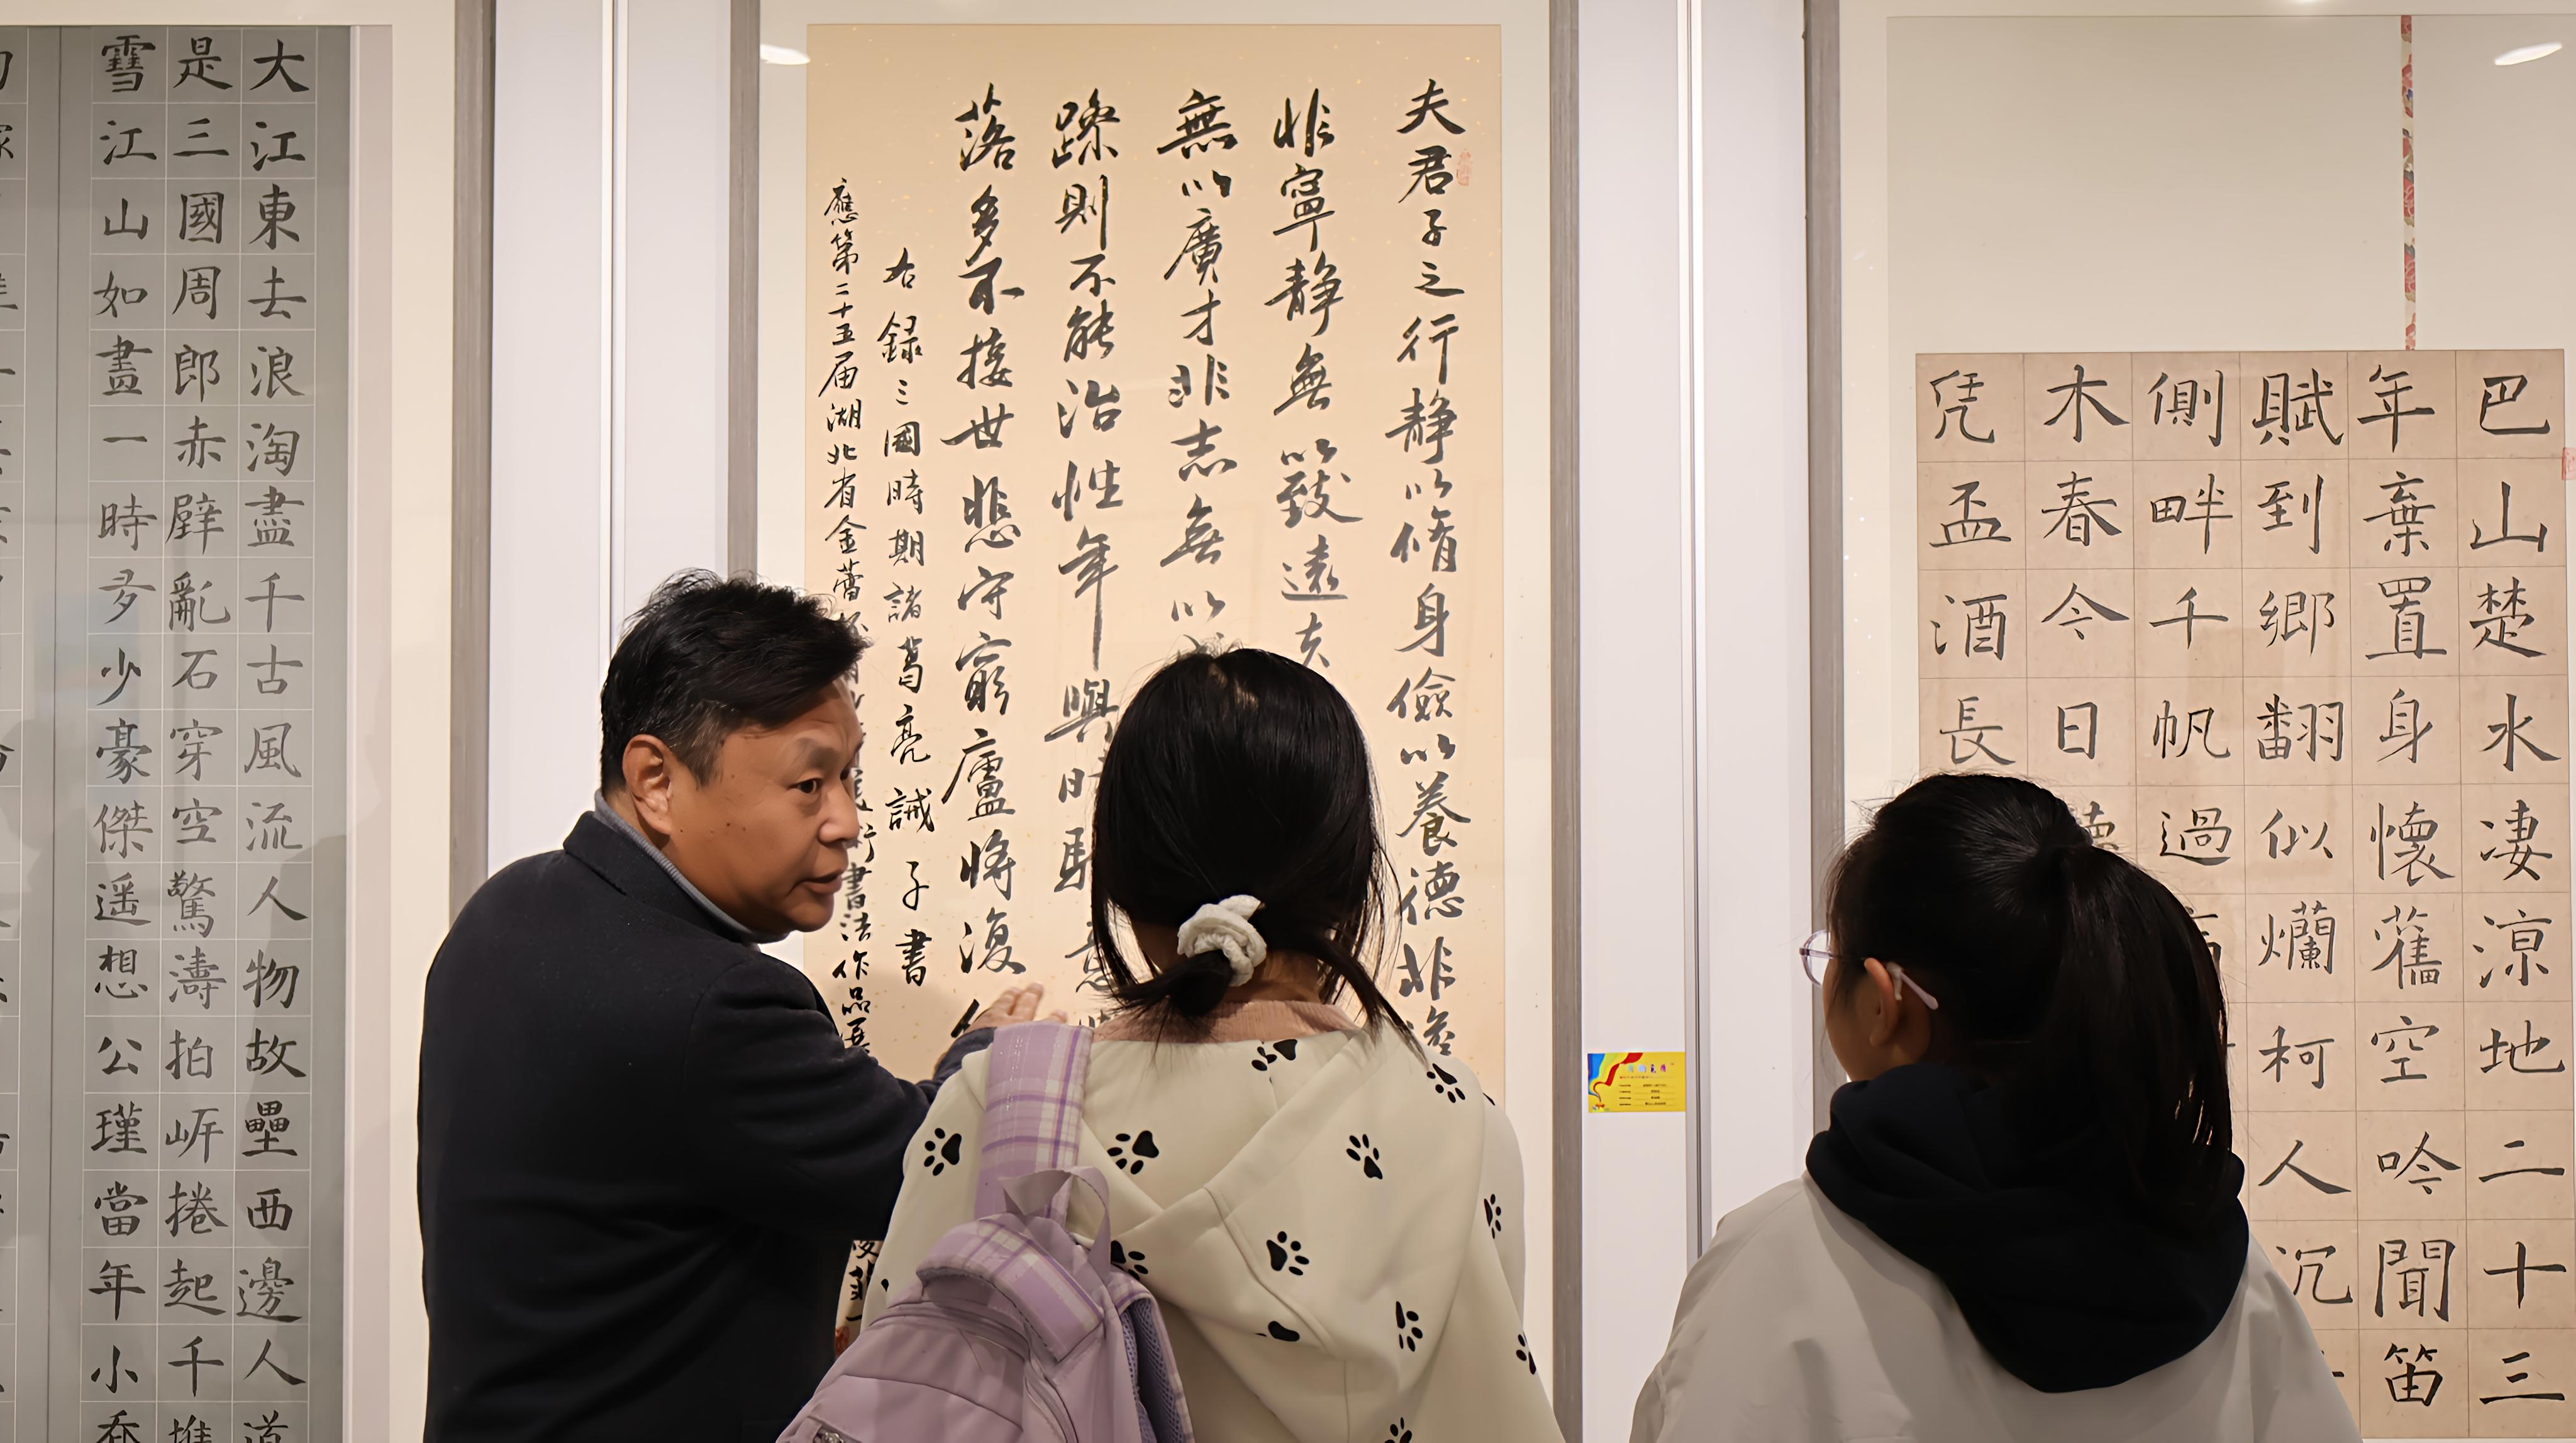 巴山楚水凄涼地二十三
年棄置身懷舊空吟聞笛
賦到鄉翻似爛柯人沉
側畔千帆過
木春今日聽
凭盃酒長
夫君子之行静以脩身儉以養德非澹
非寧静無以致遠夫
無以廣才非志無以
躁則不能治性年與時馳意
落多不接世悲守窮廬將復
右録三國時期諸葛亮誡子書
應第二十五届湖北省金蕾書法作品展
大江東去浪淘盡千古風流人物故壘西邊人道
是三國周郎赤壁亂石穿空驚濤拍岸捲起千堆
雪江山如畫一時多少豪傑遥想公瑾當年小喬